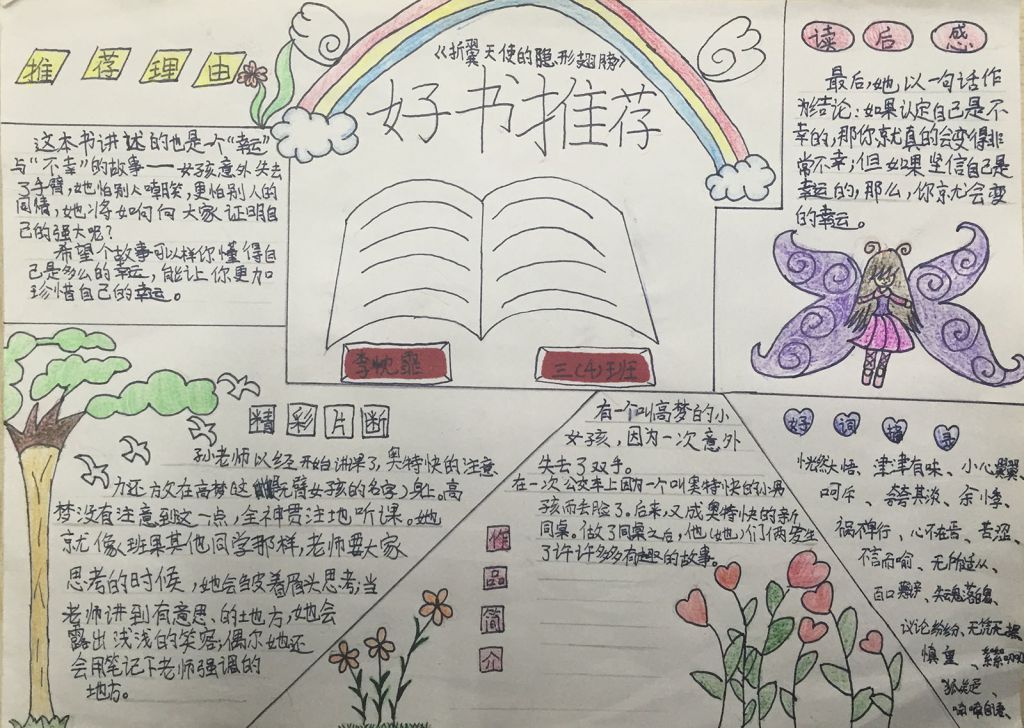 《折翼天使的隐形翅膀》
好书推荐
李
三(4)班
推荐理由
这本书讲述的也是一个“幸运”
与“不幸”的故事——女孩意外失去
了手臂,她怕别人嘲笑,更怕别人的
同情,她将如何向大家证明自
己的强大呢?
希望个故事可以样你懂得自
己是多么的幸运,能让你更加
珍惜自己的幸运。
读后感
最后,她以一句话作
为结论:如果认定自己是不
幸的,那你就真的会变得非
常不幸;但如果坚信自己是
幸运的,那么,你就会变
的幸运。
精彩片断
孙老师以经开始讲课了,奥特快的注意
力还方攵在高梦这 无臂女孩的名字)身上。高
梦没有注意到这一点,全神贯注地听课。她
就像班果其他同学那样,老师要大家
思考的时候,她会皱着眉头思考;当
老师讲到有意思、的地方,她会
露出浅浅的笑容,偶尔她还
会用笔记下老师强调的
地方。
作品简介
有一个叫高梦的小
女孩,因为一次意外
失去了双手。
在一次公交车上因为一个叫奥特快的小男
孩而去脸了。后来,又成奥特快的新
同桌。做了同桌之后,他(她)们俩发生
了许许多多有趣的故事。
好词摘录
恍然大悟、津津有味、小心翼翼
呵斥、夸夸其谈、余悸、
祸不单行、心不在焉、苦涩、
不言而喻、无所适从、
百口 、失魂落魄、
议论纷纷、无凭无据
慎重、
狐疑、